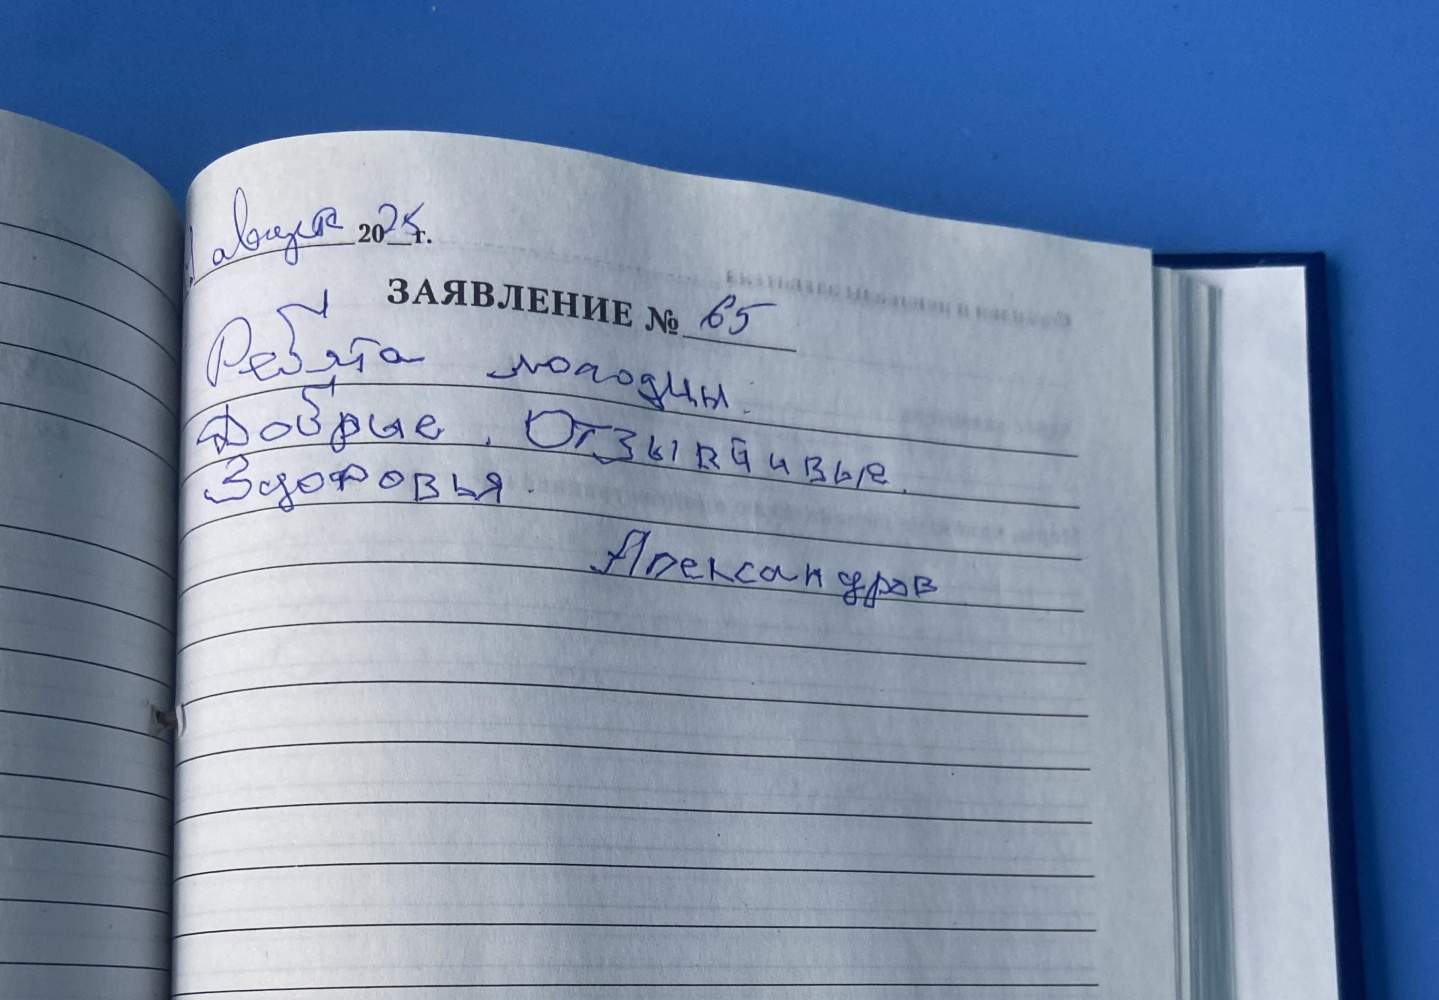 август 2025 г.
ЗАЯВЛЕНИЕ № 65
Ребята молодцы.
Добрые. Отзывчивые.
Здоровья.
Александров